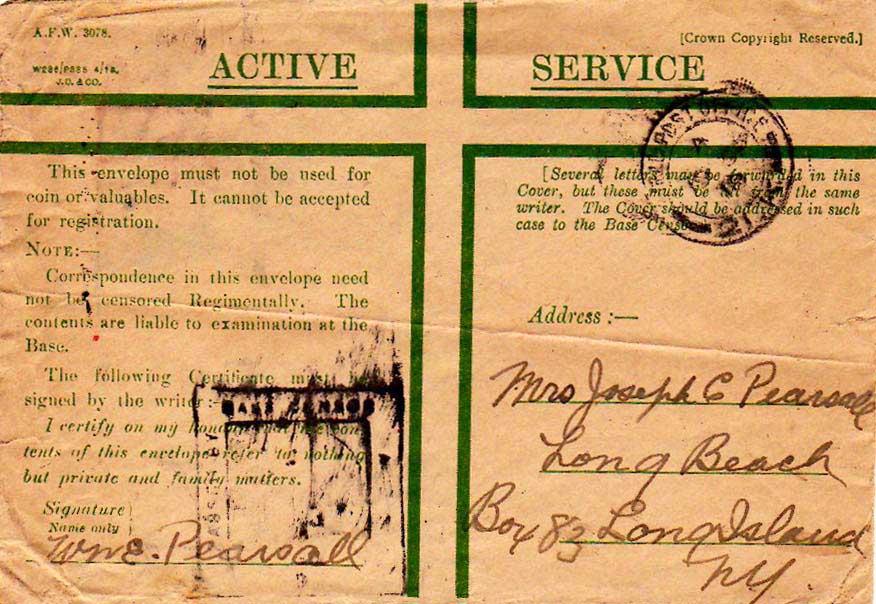 A.F.W. 3078.
[Crown Copyright Reserved.]
W286/P888 4/18.
J.C. & CO.
ACTIVE SERVICE
This envelope must not be used for
coin or valuables. It cannot be accepted
for registration.
NOTE:—
Correspondence in this envelope need
not be censored Regimentally. The
contents are liable to examination at the
Base.
The following Certificate must be
signed by the writer:—
I certify on my honour that the con-
tents of this envelope refer to nothing
but private and family matters.
Signature
Name only
Wm E. Pearsall
POST OFFICE
[Several letters may be forwarded in this
Cover, but these must be all from the same
writer. The Cover should be addressed in such
case to the Base Censor.
Address:—
Mrs Joseph C Pearsall
Long Beach
Box 83 Long Island
NY.
BASE CENSOR